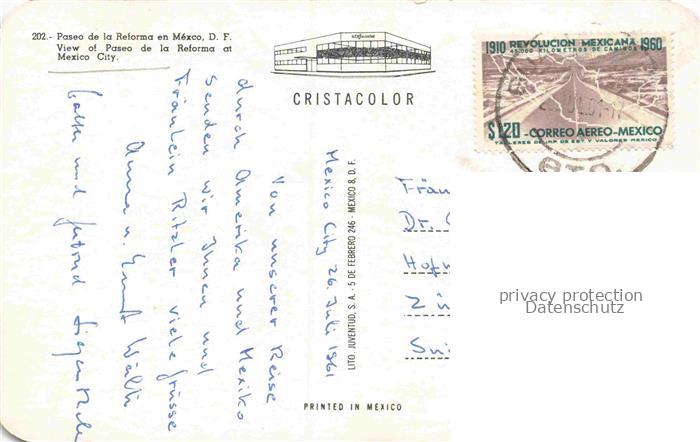 202.- Paseo de la Reforma en Méxco, D. F.
View of Paseo de la Reforma at
Mexico City.
CRISTACOLOR
1910 REVOLUCION MEXICANA 1960
45,000 KILOMETROS DE CAMINOS
$1.20 -CORREO AEREO-MEXICO
TALLERES DE IMP. DE EST. Y VALORES MEXICO
Mexico City 26. Juli 1961
Von unserer Reise
durch Amerika und Mexiko
senden wir Ihnen und
Fräulein Ritzler viele Grüsse
Anna u. Ernst Wälti
und
LITO. JUVENTUD, S. A. - 5 DE FEBRERO 246 - MEXICO 8, D. F.
Frän
Dr.
Hofw
Zü
Sui
privacy protection
Datenschutz
PRINTED IN MEXICO